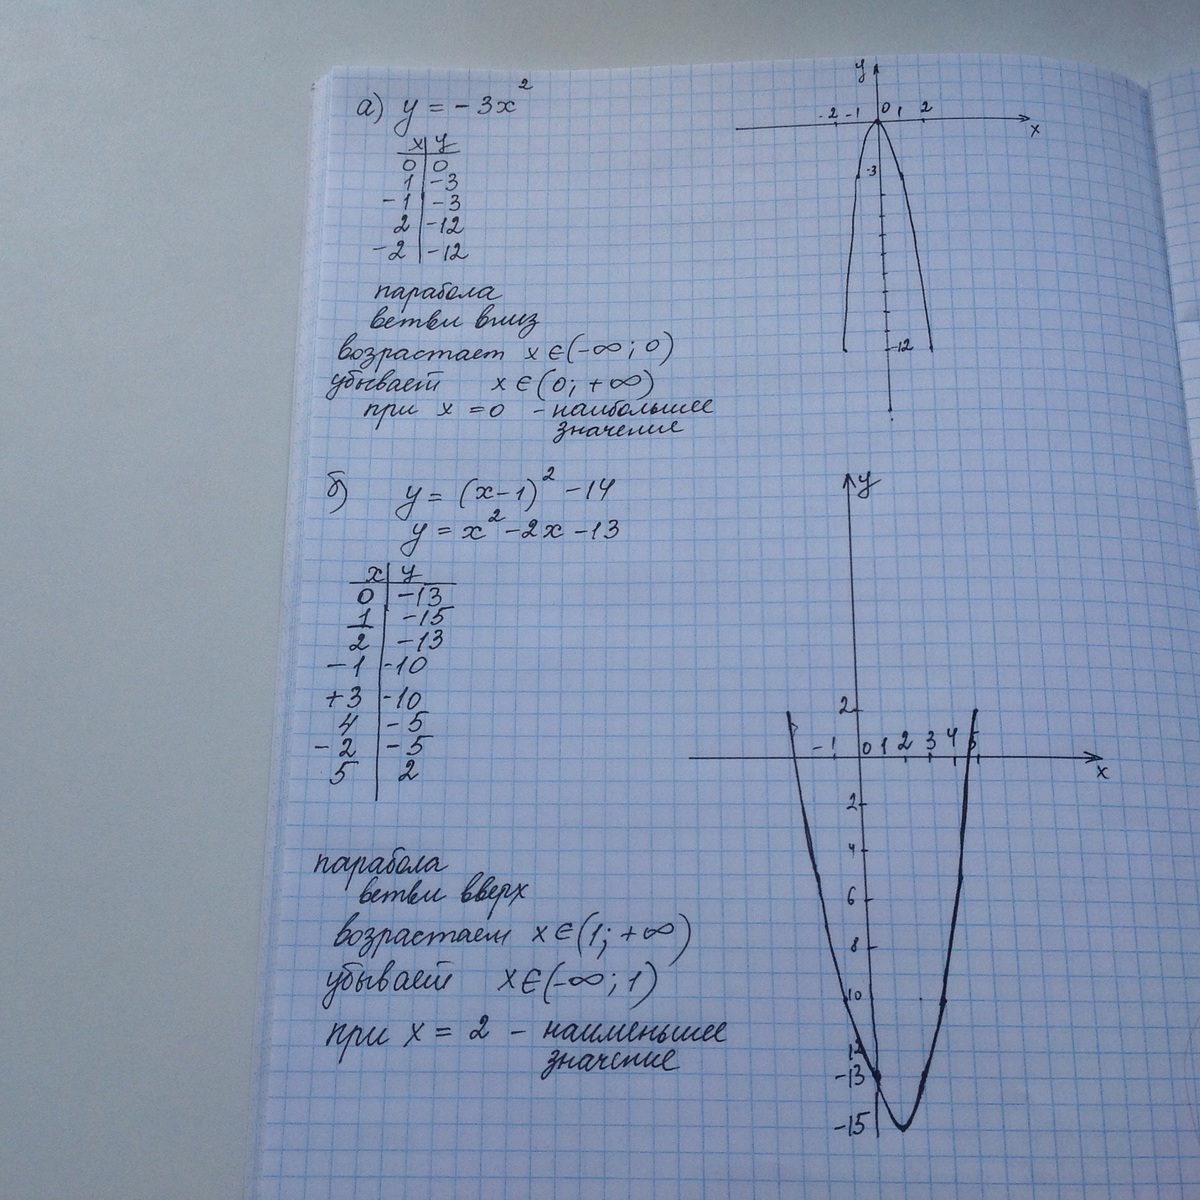 а) y = -3x²
x | y
0 | 0
1 | -3
-1 | -3
2 | -12
-2 | -12
парабола
ветви вниз
возрастает x ∈ (-∞; 0)
убывает x ∈ (0; +∞)
при x = 0 - наибольшее
значение
y
-2 -1 0 1 2
x
-3
-12
б) y = (x-1)² - 14
y = x² - 2x - 13
x | y
0 | -13
1 | -15
2 | -13
-1 | -10
+3 | -10
4 | -5
-2 | -5
5 | 2
парабола
ветви вверх
возрастает x ∈ (1; +∞)
убывает x ∈ (-∞; 1)
при x = 2 - наименьшее
значение
y
2
-1 0 1 2 3 4 5
x
2
4
6
8
10
12
-13
-15